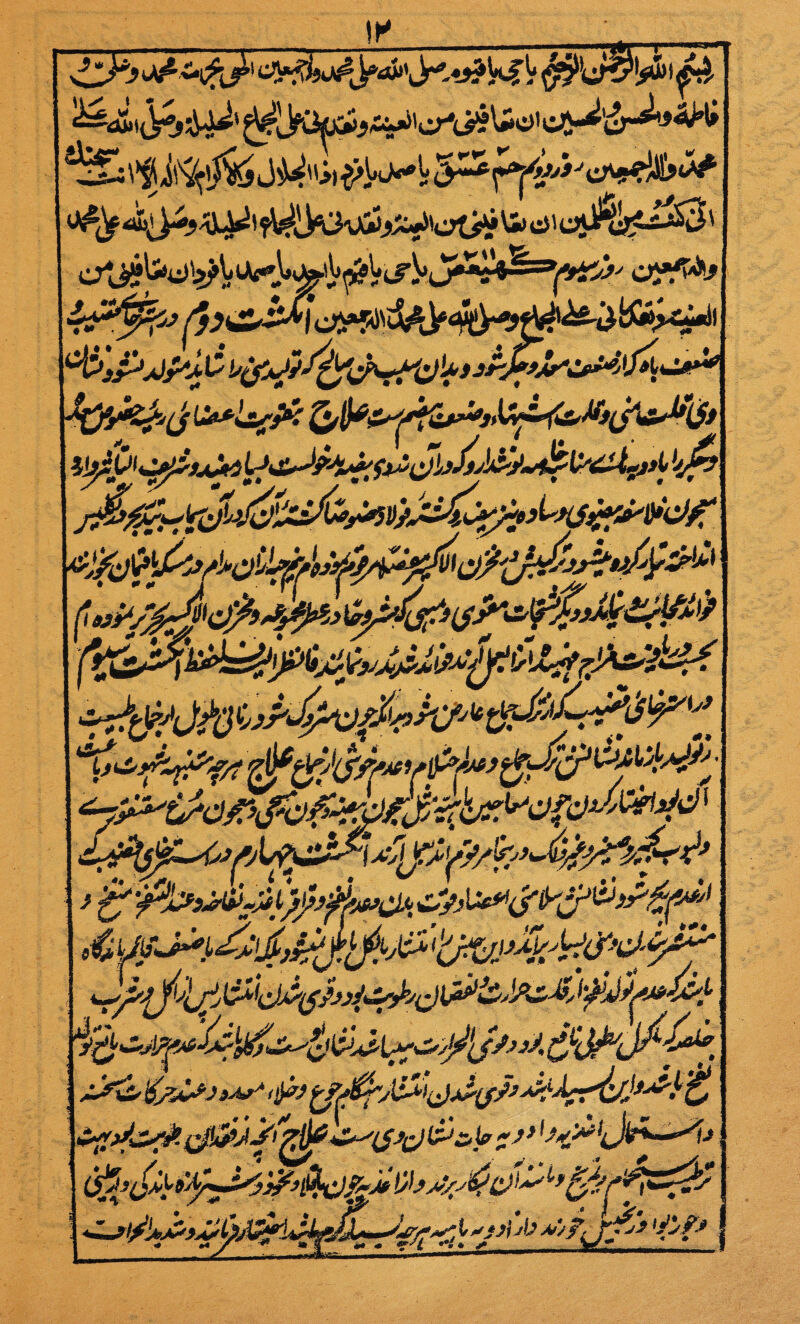 ۱۲
بسم الله الرحمن الرحیم یا حی یا قیوم صل الله علی محمد واله اجمعین الهی بحرمة محمد وعلی و
فاطمة والحسن والحسین ان تعافینی من العینة وتقدرنی علی الجماع الحلیلة وصلی الله علی
محمد واله اجمعین روز دویم حم عسق یا صمد یا فرد یا ذا الجلال والاکرام لا اله الا انت سبحنک
انی کنت من الظلمین ان تعافینی من العینة وتقدرنی علی الجماع الحلیلة وصلی الله علی محمد
واله اجمعین روز سیوم کهیعص یا حی یا قیوم یا احد یا صمد یا فرد ان تعافینی من
العینة وتقدرنی علی الجماع وصلی الله علی محمد اله اجمعین انگشت دوم در استرخای قضیب و
ضعف باه که از ضعف معده وجگر شود وبدان سبب خون صالح که تولید منی را شاید متولد نشود ونشان
وی قلت منی وقلت اشتهاء وضعف هضم ست علاج بتقویت اعضائی رئیسه خصوص معده
وجگر را بادویه مناسبه نوشدارو که در آن بسیار مفید وشریف التأثیر وارد
معجون فلاسفه بیضوی وساده نیز وکشته فولاد خصوصا کشته آن که در آن سیماب بتدریج در
انداخته تیار کرده میشود وترکیبش در مخزن الاکسیر مفصلا مرقوم نموده ام نیم حبه ازان مدام در مسکه یا پان بخورانند
فوائد عجائب رو نماید ودیگر نسخجات مقوی ومبهی که مشروحا در عطر مجموعه ومخزن الاکسیر تحریر نموده ام
بحسب دریافت مزاج آنرا بعمل آرند فوائد شدید رو نمایند فانظر الیه انگشت سیوم
در استرخائی قضیب که از ترک جماع عارض شود بدانکه چون متروک شود زمانی طویل از جماع طبیعت
از تولید باز ماند نشانش ترک جماع وعدم احتلام وعدم خوشی از جماع علاج هرچه منبهه شهوت وباعث
آن بود اختیار کردن چون معاجین باهیه مثل معجون بیضه ومعجون مسیحی ومعجون مرغ سقنقوری
ولبوب کبیر وصغیر وغیر ذلک در ینجا مرقوم اند بعمل آرند انگشت چهارم در استرخای قضیب که
از عدم ریح شود نشانش سلامتی اعضا وقوت بدن وعدم نفخ وقراقر باغذیه نفاخه وعند النفخ منتفخ و
منتشر شدن ومنی بسیار برآید واین جنس را انتشار بالکل باطل نمیشود بلکه اندکے با ضعف قایم ماند گاه
باشد که عدم تولد نفخ از قلت حرارت ونقصان رطوبت بود وقوی شدن انتشار پس از اکل وشرب
خاصه که ماکول رطوبی نافع بود وقوی الحرارت میباشد نشان اوست وگاه باشد که عدم حرارت مانع تولد
نفخ باشد واین بسیار باشد وقوی شدن انتشار هنگام جوع وخلاء معده وعند حرکات مسخنه
واستعمال اغذیه وادویه حاره نشان وی ست علاج آنچه از فقدان رطوبت بود بهت
ترطیب استحمام وتمریخ ومانند آن بکار برند واز اغذیه چون باقلا ونخود وشیر تازه
وجوزبوا وزنجبیل خورند واز ادویه باهیه هرچه بسیار گرم باشد اختیار فرمائند وشدید الحرافت